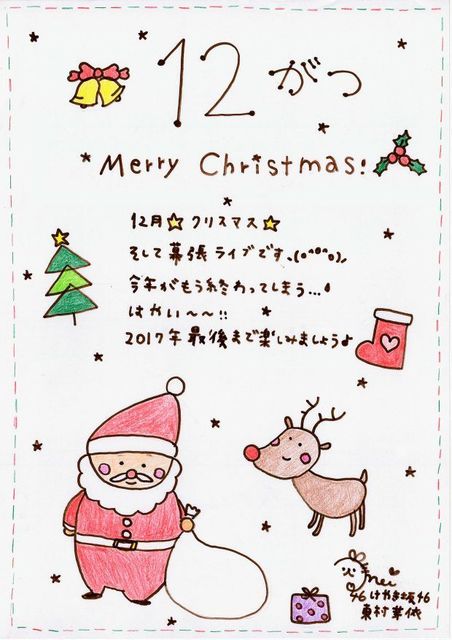 12がつ
Merry Christmas!
12月☆クリスマス☆
そして幕張ライブです、(o^o^o),
今年がもう終わってしまう...!
はやい〜〜!!
2017年最後まで楽しみましょうよ
mei
46けやき坂46
東村芽依